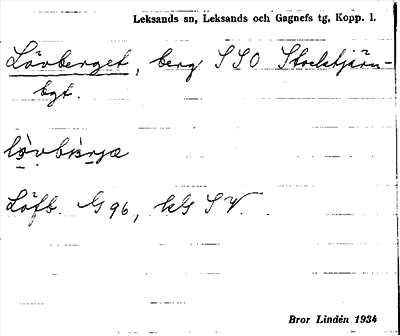 Leksands sn, Leksands och Gagnefs tg, Kopp. l.
Lövberget, berg SSO Stockstjärn-
bgt.
Löfb. G 96, kG SV.
Bror Lindén 1934